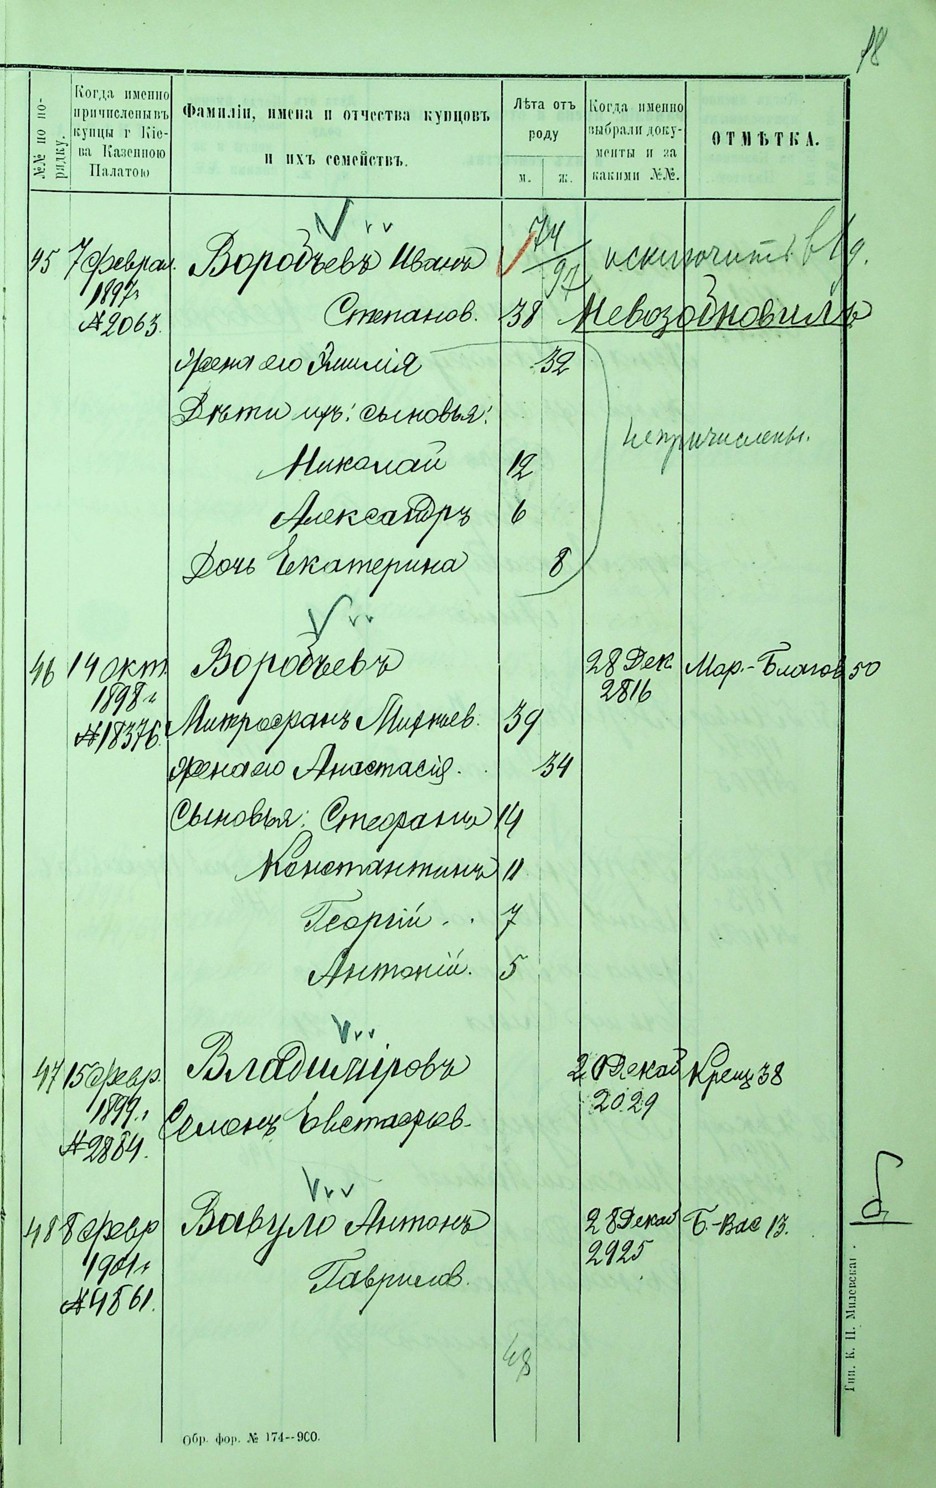 18
№№ по по-
рядку.
Когда именно
причислены въ
купцы г Кіе-
ва Казенною
Палатою
Фамиліи, имена и отчества купцовъ
и ихъ семействъ.
Лѣта отъ
роду
м. ж.
Когда именно
выбрали доку-
менты и за
какими №№.
ОТМѢТКА.
45 7 Феврал. Воробьевъ Иванъ 74/97 исключить
1897 г.
№ 2063. Степанов. 38 Невозобновилъ
жена его Эмилія 32
Дѣти ихъ: сыновья:
непричислены.
Николай 12
Александръ 6
Дочь Екатерина 8
46 14 Окт. Воробьевъ 28 Дек. Мар.-Благов 50
1898 г. 2816
№ 18376. Митрофанъ 39
жена его Анастасія. 34
Сыновья: Стефанъ 14
Константинъ 11
Георгій 7
Антоній. 5
47 15 Февр. Владиміровъ 20 Декаб Крещ 38
1899 г. 2029
№ 2884. Семенъ Евстафьев.
48 8 Февр Вавуло Антонъ 28 Декаб Б-Вас 13.
1901 г. 2925
№ 4861. Гаврилов.
48
Обр. фор. № 174--900.
Тип. К. П. Милевскаг.